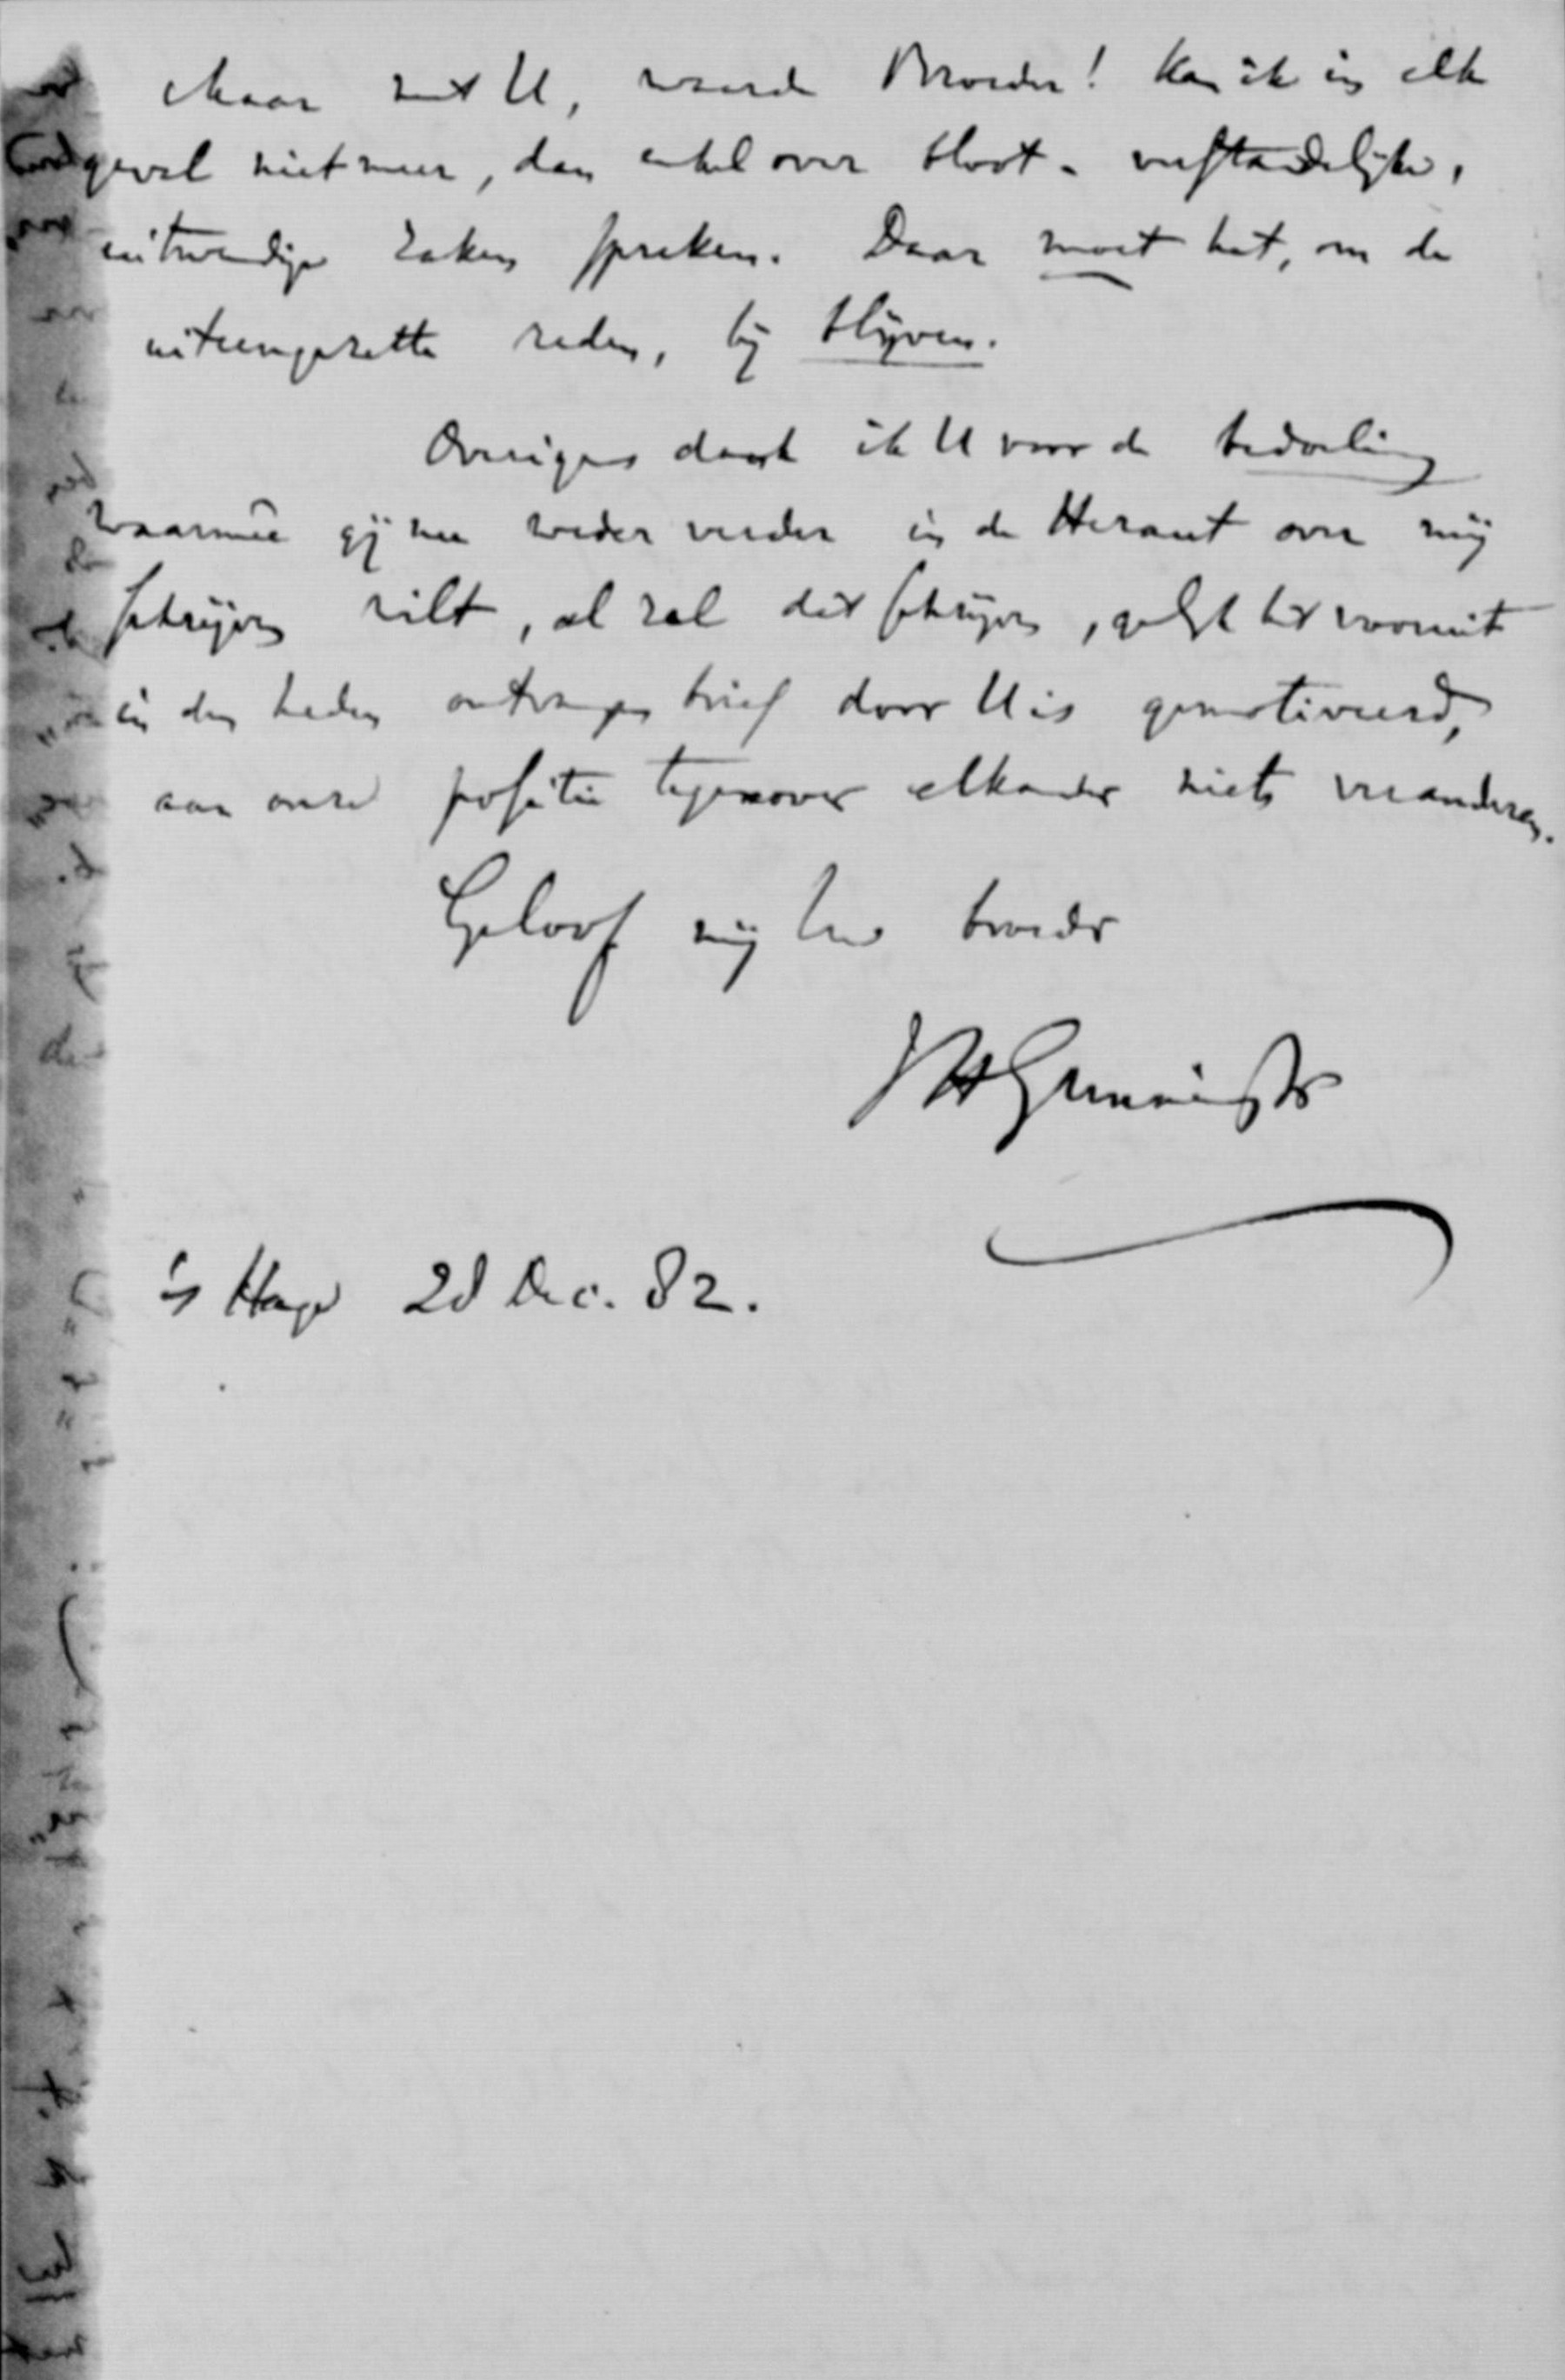 Maar met U, waarde Broeder! kan ik in elk
geval niet meer, dan enkel over bloot-verstandelijke,
uitwendige zaken spreken. Daar moet het, om de
uiteengezette reden, bij blijven.
Overigens dank ik U voor de bedoeling
waarmeê gij nu weder verder in de Heraut over mij
schrijven wilt, al zal dit schrijven, gelijk het vooruit
in den heden ontvangen brief door U is gemotiveerd,
aan onze positie tegenover elkander niets veranderen.
Geloof mij Uw broeder
JHGunning Jr
's Hage 28 Dec. 82.